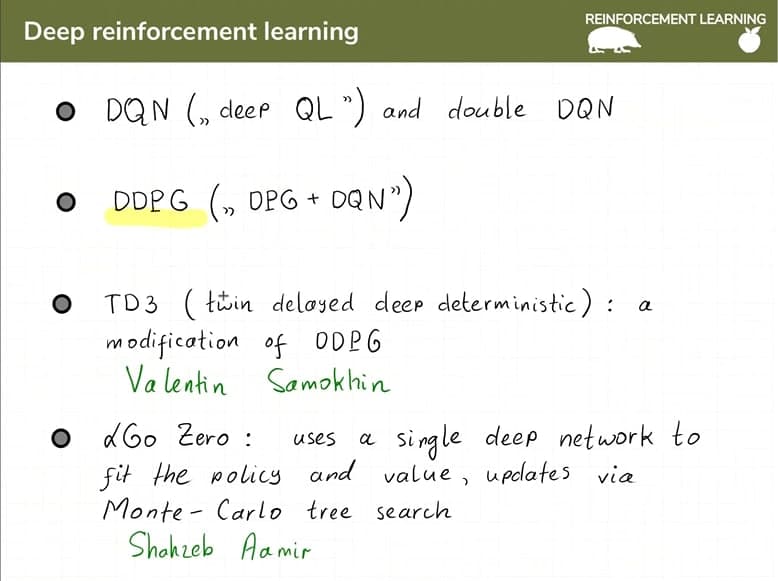 Deep reinforcement learning
REINFORCEMENT LEARNING
DQN („ deep QL ”) and double DQN
DDPG („ DPG + DQN”)
TD3 ( twin delayed deep deterministic) : a
modification of DDPG
Valentin Samokhin
αGo Zero : uses a single deep network to
fit the policy and value, updates via
Monte-Carlo tree search
Shahzeb Aamir